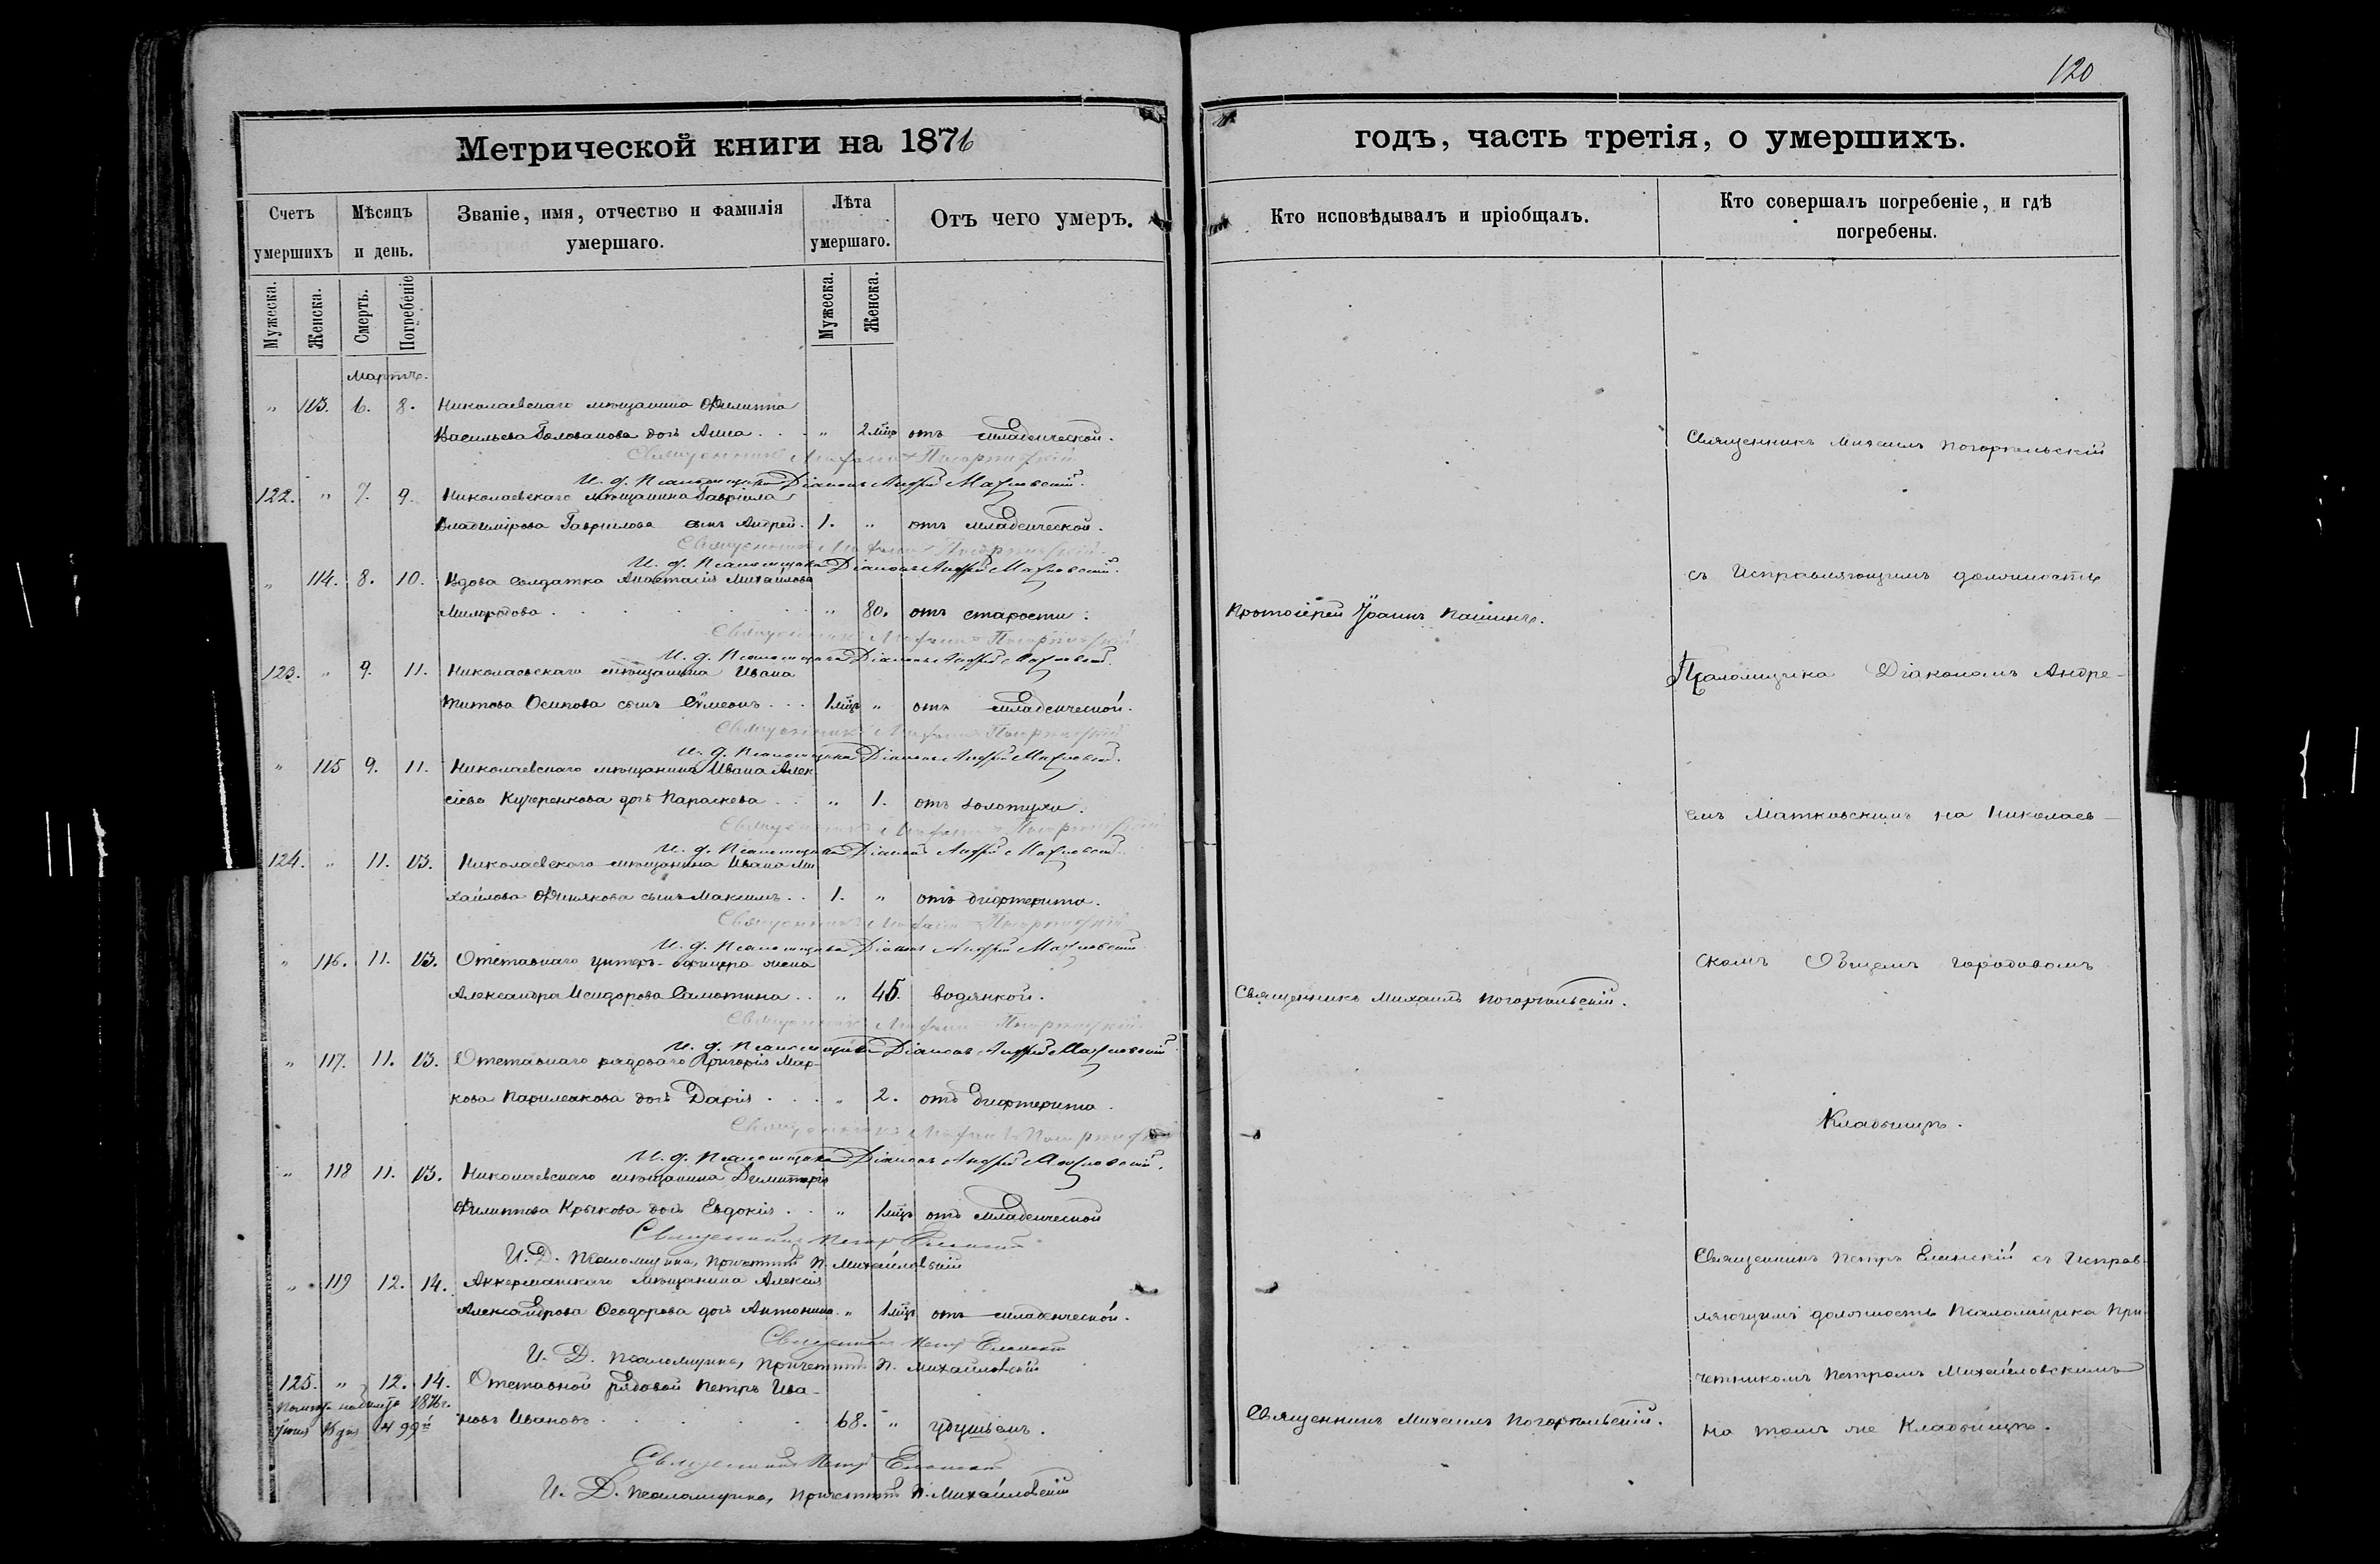 120
Метрической книги на 1876
годъ, часть третія, о умершихъ.
Счетъ умершихъ
Мѣсяцъ и день.
Званіе, имя, отчество и фамилія умершаго.
Лѣта умершаго.
Отъ чего умеръ.
Кто исповѣдывалъ и пріобщалъ.
Кто совершалъ погребеніе, и гдѣ погребены.
Мужеска.
Женска.
Смерть.
Погребеніе
Мужеска.
Женска.
Мартъ.
" 113. 6. 8. Николаевскаго мѣщанина Филиппа
Васильева Голованова дочь Анна . . . " 2 мѣц отъ младенческой.
Священникъ Михаилъ Погорѣльскій
И. д. Псаломщика Діаконъ Андрей Матковскій.
122. " 7. 9. Николаевскаго мѣщанина Гавріила
Владимірова Гаврилова сынъ Андрей. 1. " отъ младенческой.
Священникъ Михаилъ Погорѣльскій.
И. д. Псаломщика Діаконъ Андрей Матковскій.
" 114. 8. 10. Вдова солдатка Анастасія Михайлова
" 80. отъ старости.
Протоіерей Іоаннъ Пашинъ.
Священникъ Михаилъ Погорѣльскій
И. д. Псаломщика Діаконъ Андрей Матковскій.
123. " 9. 11. Николаевскаго мѣщанина Ивана
Титова Осипова сынъ Сѵмеонъ . . . 1 мѣц " отъ младенческой.
Священникъ Михаилъ Погорѣльскій
И. д. Псаломщика Діаконъ Андрей Матковскій.
" 115 9. 11. Николаевскаго мѣщанина Ивана Алек
сіева Кучеренкова дочь Параскева . . " 1. отъ золотухи.
Священникъ Михаилъ Погорѣльскій
И. д. Псаломщика Діаконъ Андрей Матковскій.
124. " 11. 13. Николаевскаго мѣщанина Ивана Ми
хайлова сынъ Максимъ . . 1. " отъ дифтерита.
Священникъ Михаилъ Погорѣльскій
И. д. Псаломщика Діаконъ Андрей Матковскій
" 116. 11. 13. Отставнаго унтеръ-офицера жена
Александра Исидорова Самотина . . " 45. водянкой.
Священникъ Михаилъ Погорѣльскій.
Священникъ Михаилъ Погорѣльскій.
И. д. Псаломщика Діаконъ Андрей Матковскій
" 117. 11. 13. Отставнаго рядоваго Григорія Мар-
кова дочь Дарія . . . " 2. отъ дифтерита.
Священникъ Михаилъ Погорѣльскій
И. д. Псаломщика Діаконъ Андрей Матковскій.
" 118 11. 13. Николаевскаго мѣщанина Димитрія
Филиппова Крыкова дочь Евдокія . . " 1 мѣц отъ младенческой
Священникъ Петръ Еланскій
И. Д. Псаломщика, Причетникъ П. Михайловскій
" 119 12. 14. Аккерманскаго мѣщанина Алексія
Александрова Ѳеодорова дочь Антонина. " 1 мѣц отъ младенческой.
Священникъ Петръ Еланскій
И. Д. Псаломщика, Причетникъ П. Михайловскій
125. " 12. 14. Отставной рядовой Петръ Ива-
новъ Ивановъ . . . . . 68. " удушьемъ.
Священникъ Михаилъ Погорѣльскій.
1876 г.
Іюня 15 дня № 99
Священникъ Петръ Еланскій
И. Д. Псаломщика, Причетникъ П. Михайловскій
Священникъ Михаилъ Погорѣльскій
съ Исправляющимъ должность
Псаломщика Діакономъ Андре-
емъ Матковскимъ на Николаев-
скомъ Общемъ городовомъ
Кладбищѣ.
Священникъ Петръ Еланскій съ Исправ-
ляющимъ должность Псаломщика При-
четникомъ Петромъ Михайловскимъ
на томъ же Кладбищѣ.